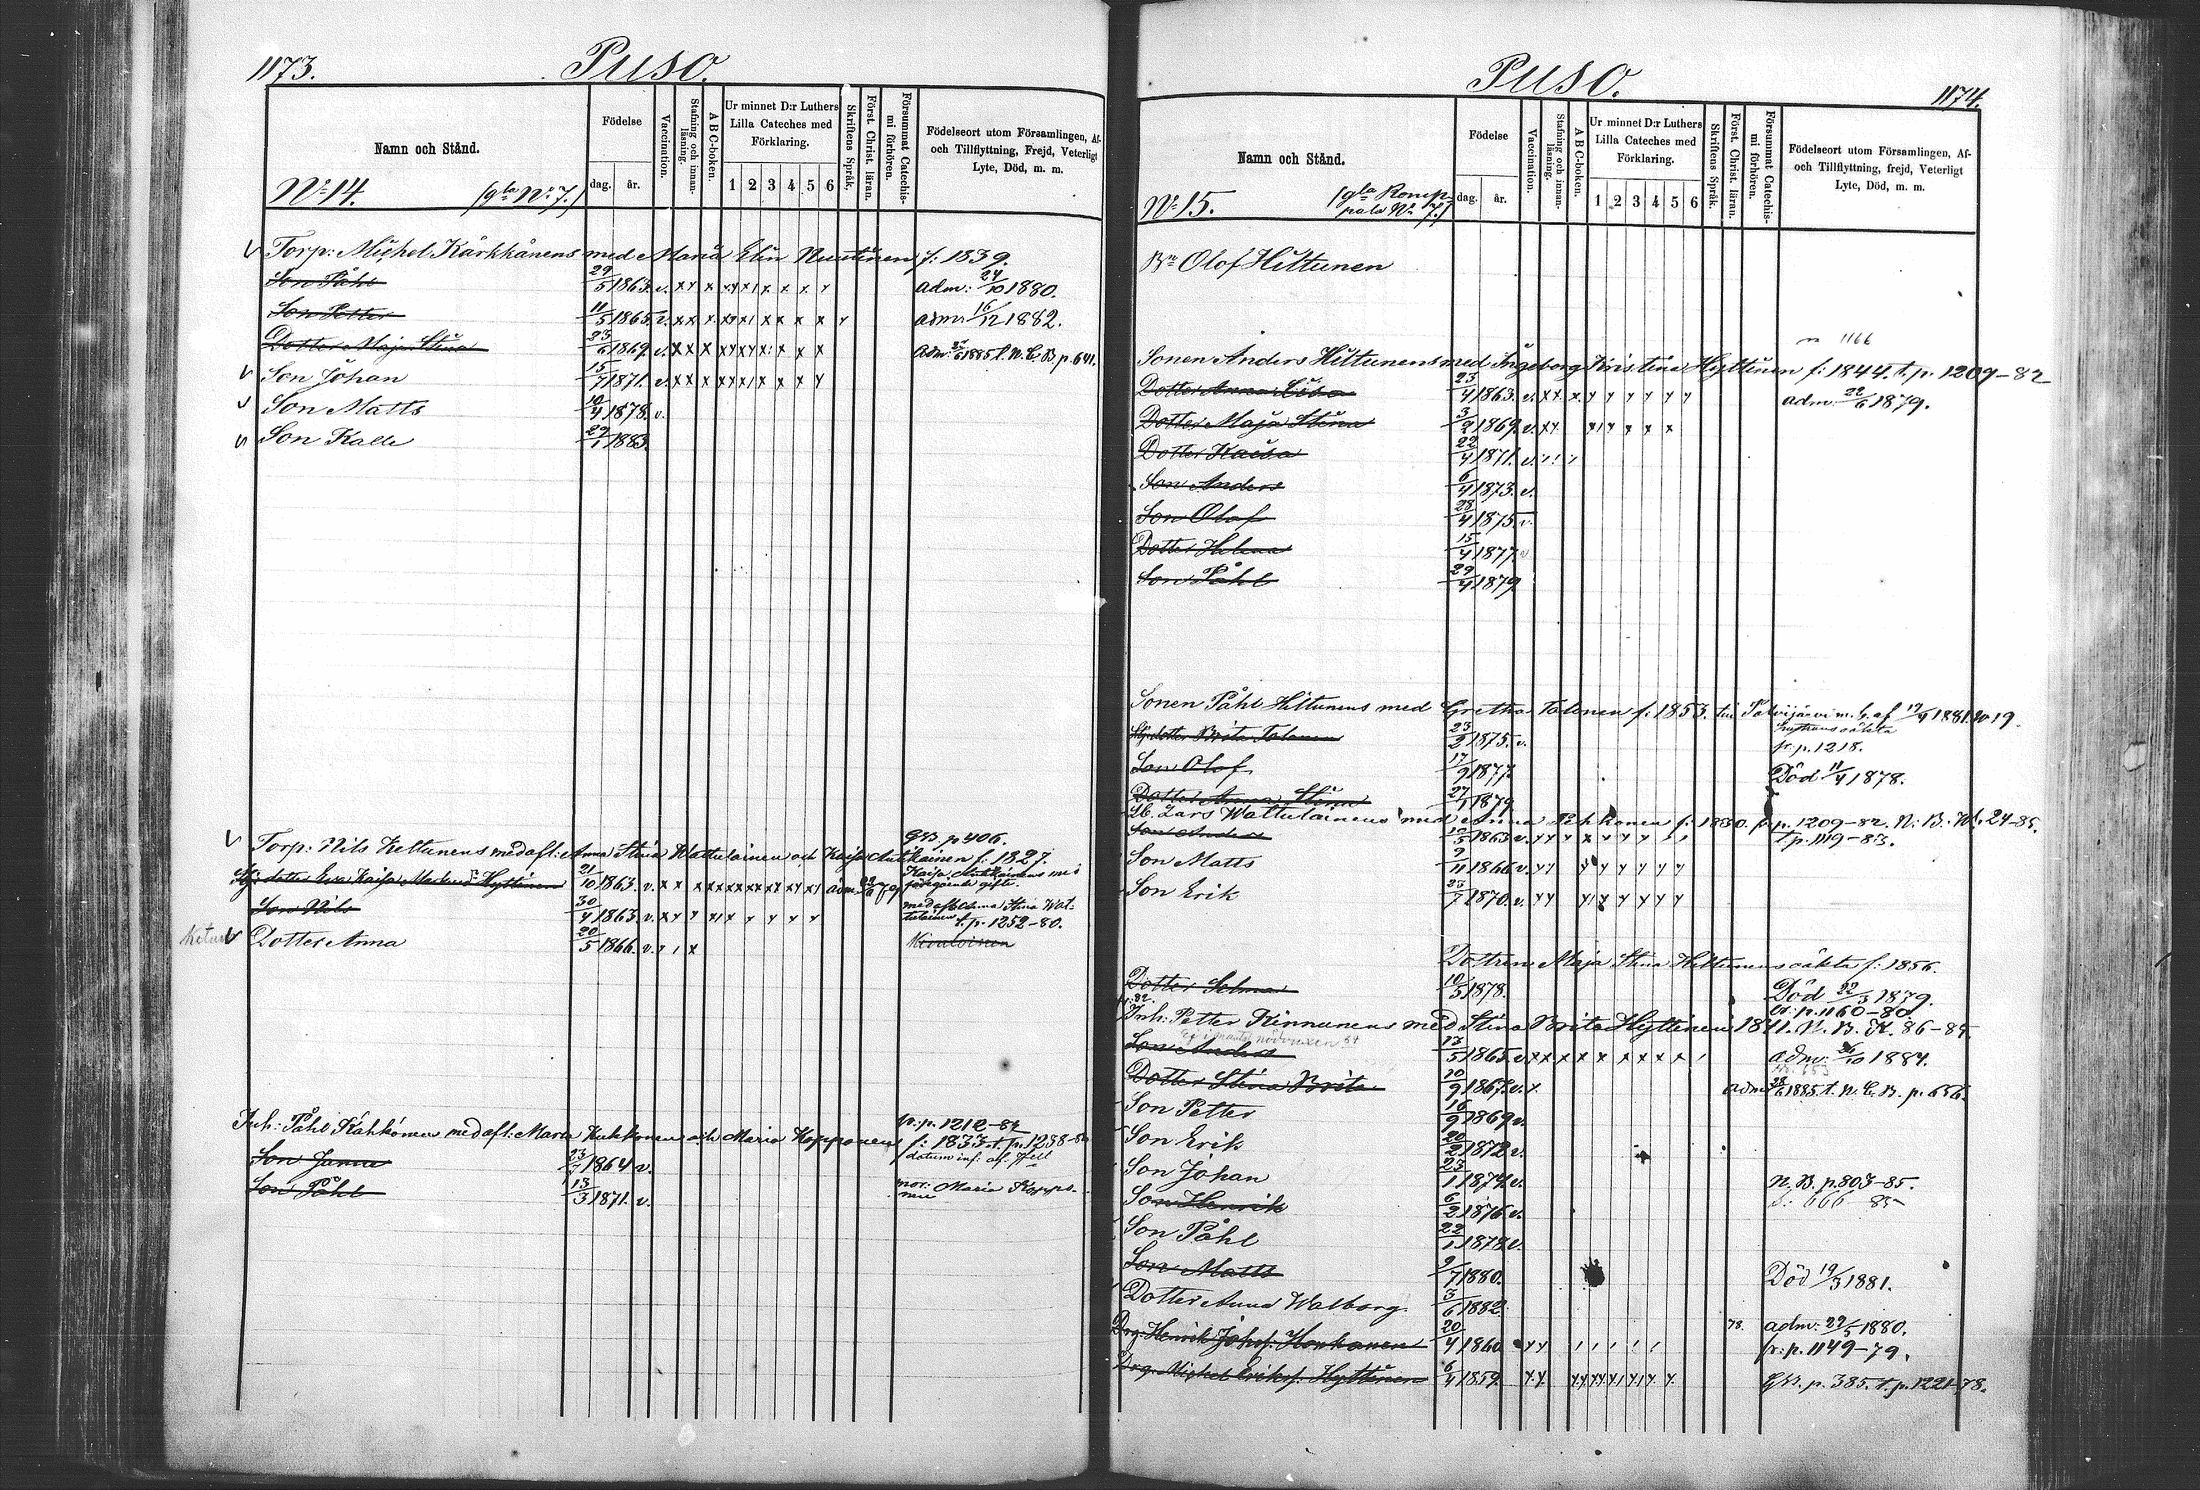 1173.
Puso.
Namn och Stånd.
Födelse
dag. år.
Vaccination.
Stafning och innanläsning.
ABC-boken.
Ur minnet D:r Luthers Lilla Cateches med Förklaring.
1 2 3 4 5 6
Skriftens Språk.
Först. Christ. läran.
Försummat Catechismi förhören.
Födelseort utom Församlingen, Af- och Tillflyttning, Frejd, Veterligt Lyte, Död, m. m.
No 14. (gla No 7.)
Torp: Michel Kärkkänens med Maria Elin Nuutinen f: 1839.
Son Påhl 29/5 1863. v. adm: 24/10 1880.
Son Petter 11/5 1865. v. adm: 16/12 1882.
Dotter Maja Stina 23/6 1869. v. 1885 t. N. C. B. p. 641.
Son Johan 15/7 1871. v.
Son Matts 10/4 1878. v.
Son Kalle 29/1 1883.
p 406.
Torp: Nils Keltunens med afl: Anna Stina Wattulainen och Kaisa Antikainen f: 1827.
dotter Eva Kaisa Hyttinen 21/10 1863. v. Kaisa
Son Nils 30/4 1863. v. med afl. Anna Stina Wattulainen t. p. 1252-80.
Dotter Anna 20/5 1866. v.
fr. p. 1212-84
Inh: Påhl Kähkönen med afl: Maria Kukkonen och Maria Kopponens f: 1833 t. p. 1238
Son Janne 23/7 1864 v.
Son Påhl 13/3 1871. v. Maria
Puso.
1174.
Namn och Stånd.
Födelse
dag. år.
Vaccination.
Stafning och innanläsning.
ABC-boken.
Ur minnet D:r Luthers Lilla Cateches med Förklaring.
1 2 3 4 5 6
Skriftens Språk.
Först. Christ. läran.
Försummat Catechismi förhören.
Födelseort utom Församlingen, Af- och Tillflyttning, frejd, Veterligt Lyte, Död, m. m.
No 15. (gla Romppala No 7.)
Bn Olof Hiltunen
1166
Sonen Anders Hiltunens med Ingeborg Kristina Hyttinen f: 1844. t. p. 1209-82
Dotter Anna Lisa 23/4 1863. v. adm: 22/6 1879.
Dotter Maja Stina 3/2 1869. v.
Dotter Kaisa 22/4 1871. v.
Son Anders 6/4 1873. v.
Son Olof 28/4 1875. v.
Dotter Helena 15/4 1877. v
Son Påhl 29/4 1879
Sonen Påhl Hiltunens med Gretha Tolonen f: 1853. m. b. af 1881. No 19.
dotter Brita Tolonen 23/2 1875. v. fr. p. 1218.
Son Olof 17/9 1877. Död 11/4 1878.
Dotter Anna Stina 27/1 1879
Lars Wattulainens med Anna Pehkonen f: 1830. fr p. 1209-82. N: B. 24-85.
Son Anders 10/5 1863 v. t. p. 1119-83.
Son Matts 9/11 1866 v.
Son Erik 23/7 1870. v.
Dottren Maja Stina Hiltunens oäkta f: 1856.
Dotter Selma 10/5 1878. Död 22/3 1879.
fr: p. 1160-80
Inh: Petter Kinnunens med Stina Brita Hyttinen 1841. N. B. 86-85
Son Anders 13/5 1865. v. adm: 26/10 1884.
Dotter Stina Brita 10/9 1867. v. adm 28/6 1885 t. N. C. B. p. 656.
Son Petter 16/9 1869 v.
Son Erik 20/2 1872 v.
Son Johan 23/1 1874. v. N. B. p. 803-85.
Son Henrik 6/2 1876 v. 666-85
Son Påhl 22/1 1878. v.
Son Matts 9/7 1880. Död 19/3 1881.
Dotter Anna Walborg 3/6 1882
Drg. Henrik Johsf. Honkanen 20/4 1860 78. adm: 29/5 1880. fr: p. 1149-79.
Drg. Michel Eriksf. Hyttinen 6/4 1859. p. 385. t. p. 1221-78.